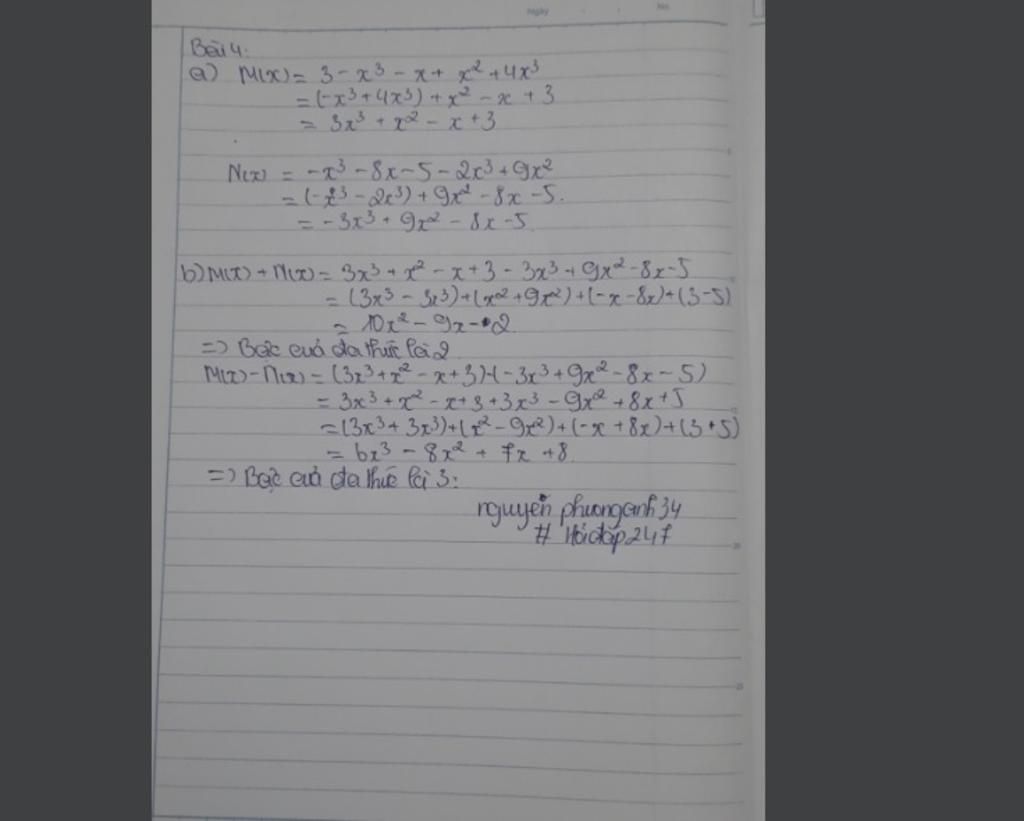 Ngày
No.
Bài 4:
a) M(x) = 3 - x³ - x + x² + 4x³
= (-x³ + 4x³) + x² - x + 3
= 3x³ + x² - x + 3
N(x) = -x³ - 8x - 5 - 2x³ + 9x²
= (-x³ - 2x³) + 9x² - 8x - 5.
= -3x³ + 9x² - 8x - 5
b) M(x) + N(x) = 3x³ + x² - x + 3 - 3x³ + 9x² - 8x - 5
= (3x³ - 3x³) + (x² + 9x²) + (-x - 8x) + (3 - 5)
= 10x² - 9x - 2
=> Bậc của đa thức là 2
M(x) - N(x) = (3x³ + x² - x + 3) - (-3x³ + 9x² - 8x - 5)
= 3x³ + x² - x + 3 + 3x³ - 9x² + 8x + 5
= (3x³ + 3x³) + (x² - 9x²) + (-x + 8x) + (3 + 5)
= 6x³ - 8x² + 7x + 8
=> Bậc của đa thức là 3:
nguyễn phuonganh34
# Hỏiđáp247